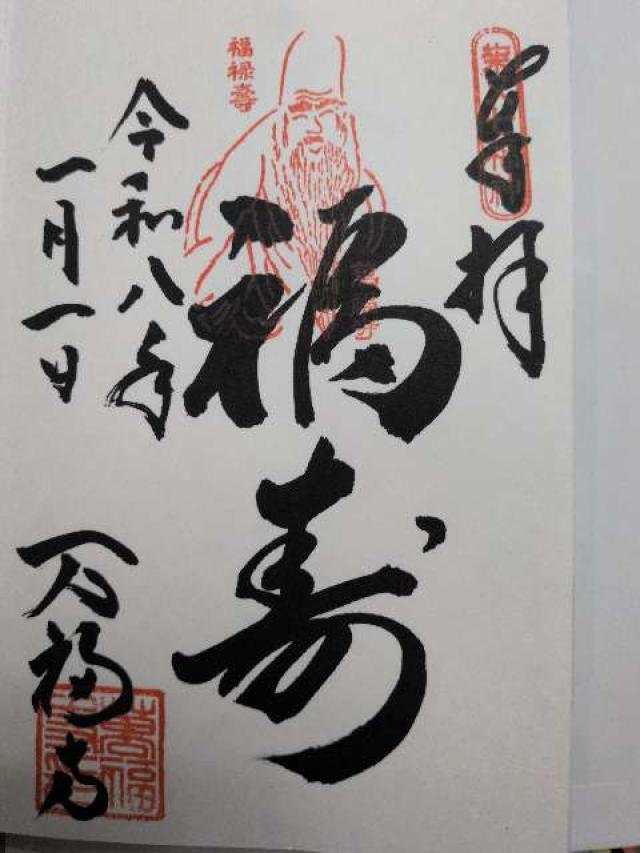 奉拝
福禄壽
福寿
令和八年
一月一日
万福寺
萬福